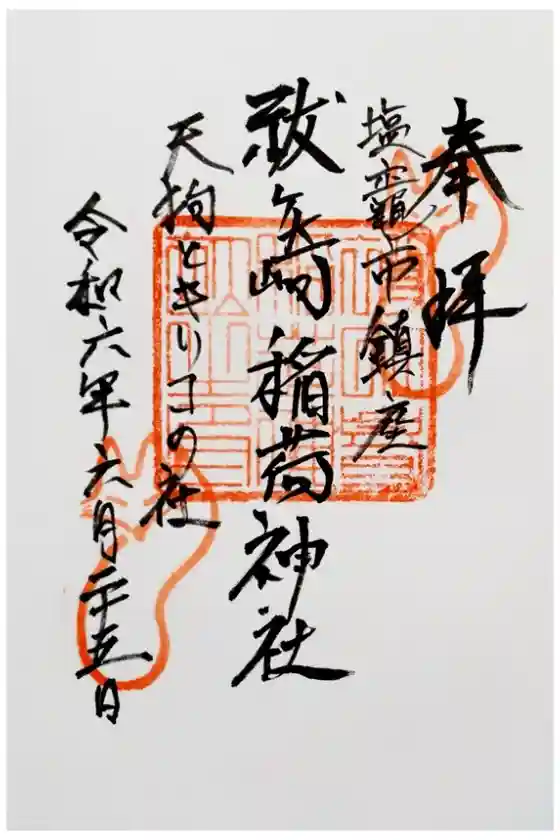 奉拝
塩竈市鎮座
祓ヶ崎稲荷神社
天拘ときりコの社
令和六年六月二十五日